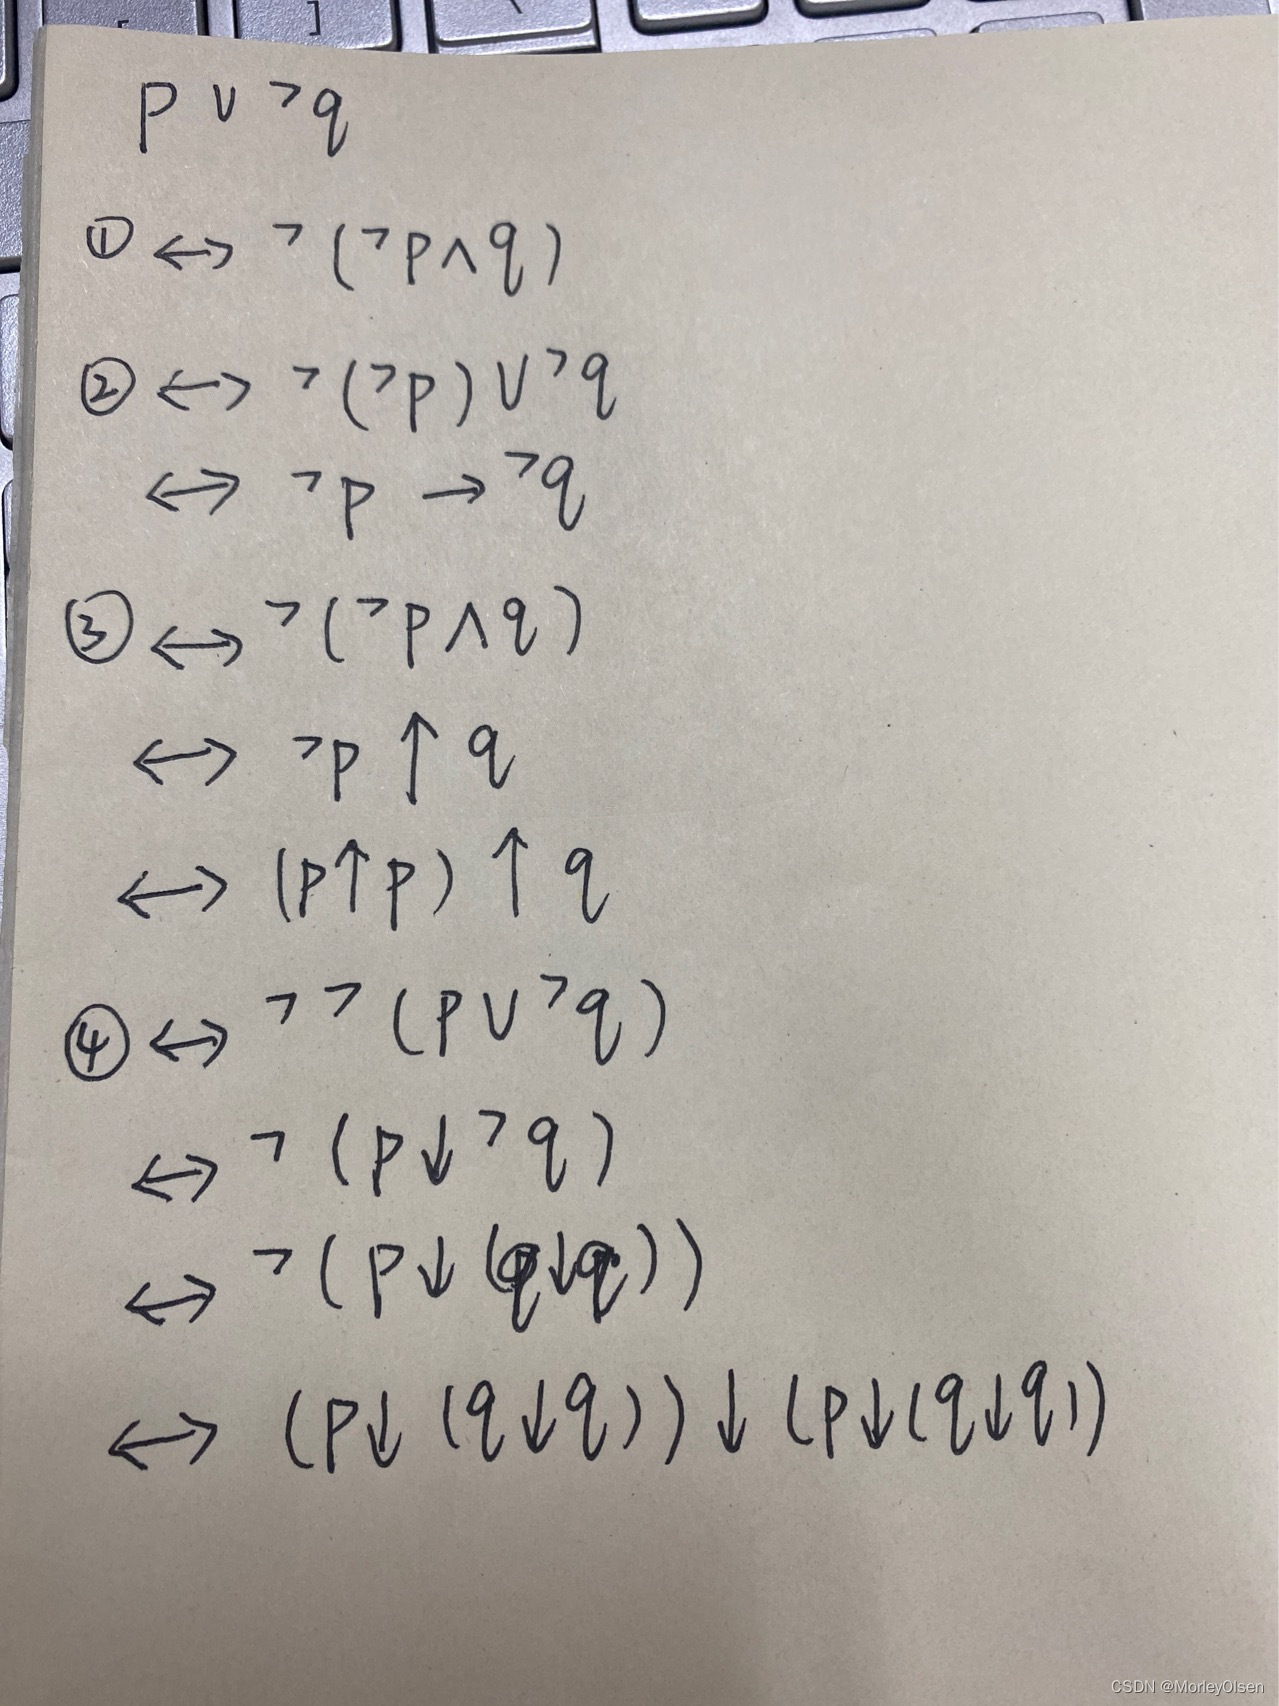 p ∨ ¬q
① ↔ ¬(¬p∧q)
② ↔ ¬(¬p)∨¬q
↔ ¬p → ¬q
③ ↔ ¬(¬p∧q)
↔ ¬p ↑ q
↔ (p↑p) ↑ q
④ ↔ ¬¬(p∨¬q)
↔ ¬(p↓¬q)
↔ ¬(p↓(q↓q))
↔ (p↓(q↓q))↓(p↓(q↓q))
CSDN @MorleyOlsen